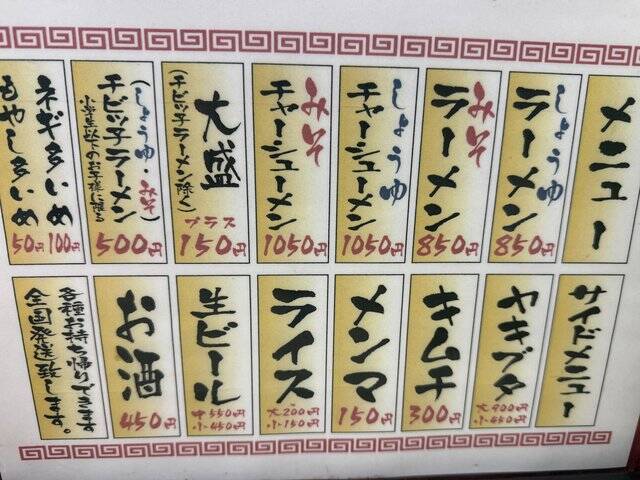 メニュー
しょうゆ
ラーメン
850円
みそ
ラーメン
850円
しょうゆ
チャーシューメン
1050円
みそ
チャーシューメン
1050円
大盛
(チビッ子ラーメン除く)
プラス
150円
チビッ子ラーメン
(しょうゆ・みそ)
小学生以下のお子様に限る
500円
ネギ多いめ
100円
もやし多いめ
50円
サイドメニュー
ヤキブタ
大900円
小450円
キムチ
300円
メンマ
150円
ライス
大200円
小150円
生ビール
中550円
小450円
お酒
450円
各種お持ち帰りできます
全国発送致します。